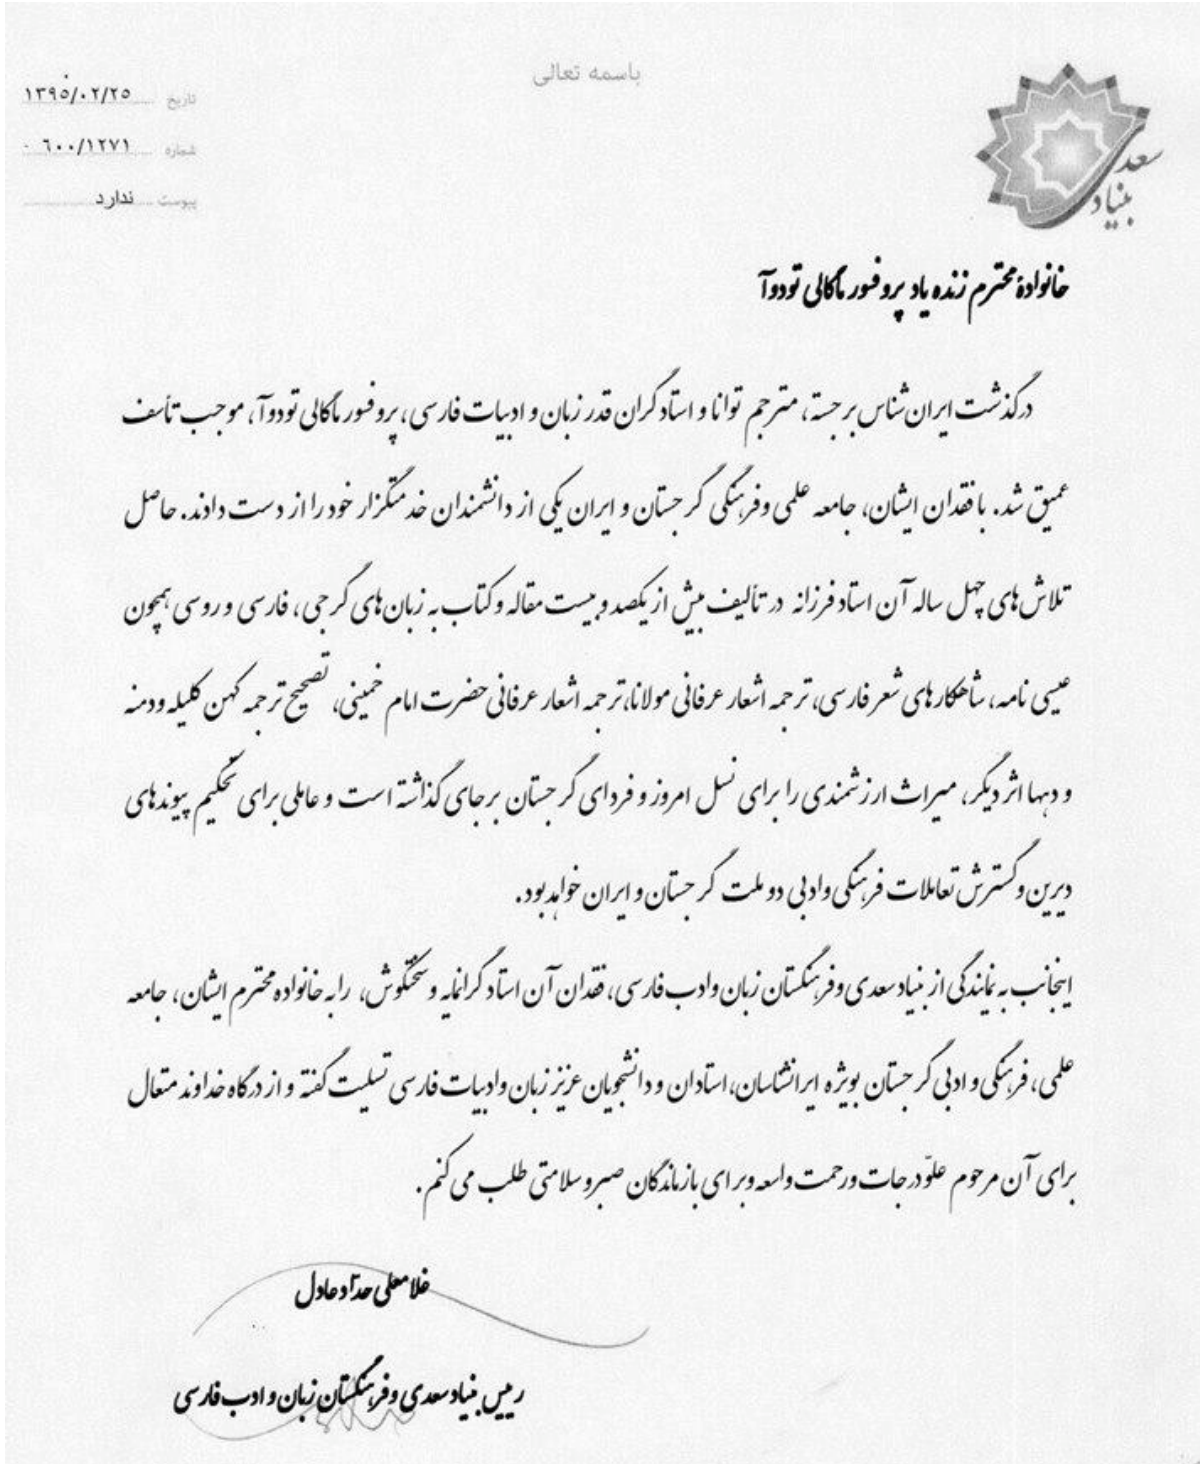 باسمه تعالی
سعدی
بنیاد
تاریخ ۱۳۹۵/۰۲/۲۵
شماره ۶۰۰/۱۲۷۱
پیوست ندارد
خانوادهٔ محترم زنده یاد پروفسور ماگالی تودوآ
درگذشت ایران شناس برجسته، مترجم توانا و استاد گران قدر زبان و ادبیات فارسی، پروفسور ماگالی تودوآ، موجب تأسف
عمیق شد. با فقدان ایشان، جامعه علمی و فرهنگی گرجستان و ایران یکی از دانشمندان خدمتگزار خود را از دست دادند. حاصل
تلاش های چهل ساله آن استاد فرزانه در تألیف بیش از یکصد و بیست مقاله و کتاب به زبان های گرجی، فارسی و روسی همچون
عیسی نامه، شاهکارهای شعر فارسی، ترجمه اشعار عرفانی مولانا، ترجمه اشعار عرفانی حضرت امام خمینی، تصحیح ترجمه کهن کلیله و دمنه
و دهها اثر دیگر، میراث ارزشمندی را برای نسل امروز و فردای گرجستان برجای گذاشته است و عاملی برای تحکیم پیوندهای
دیرین و گسترش تعاملات فرهنگی و ادبی دو ملت گرجستان و ایران خواهد بود.
اینجانب به نمایندگی از بنیاد سعدی و فرهنگستان زبان و ادب فارسی، فقدان آن استاد گرانمایه و سختکوش، را به خانواده محترم ایشان، جامعه
علمی، فرهنگی و ادبی گرجستان بویژه ایرانشناسان، استادان و دانشجویان عزیز زبان و ادبیات فارسی تسلیت گفته و از درگاه خداوند متعال
برای آن مرحوم علوّ درجات و رحمت واسعه و برای بازماندگان صبر و سلامتی طلب می کنم.
غلامعلی حدّاد عادل
رییس بنیاد سعدی و فرهنگستان زبان و ادب فارسی